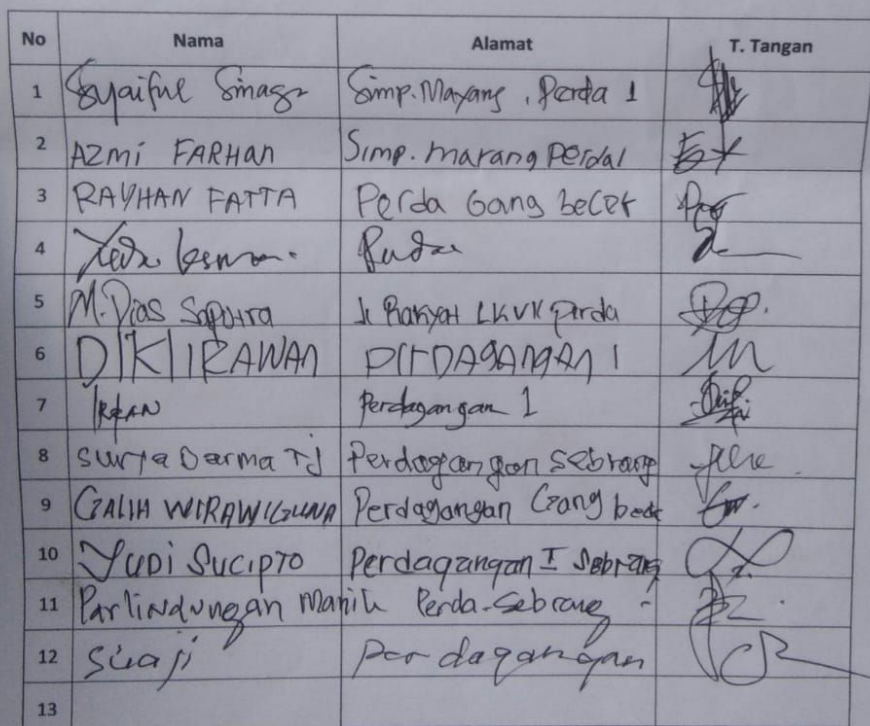 No Nama Alamat T. Tangan
1 Syaiful Sinaga Simp. Mayang, Perda 1
2 AZMi FARHAN Simp. marang Perdal
3 RAYHAN FATTA Perda Gang becek
4
5 M. Dias Saputra Jl Rakyat LKVII Perda
6 DIKI IRAWAN PERDAGANGAN 1
7 IRFAN Perdagangan 1
8 Surya Darma Tj Perdagangan Sebrang
9 GALIH WIRAWIGUNA Perdagangan Gang becek
10 YUDI SUCIPTO Perdagangan I Sebrang
11 Parlindungan Manik Perda-Sebrang
12 Suaji Perdagangan
13